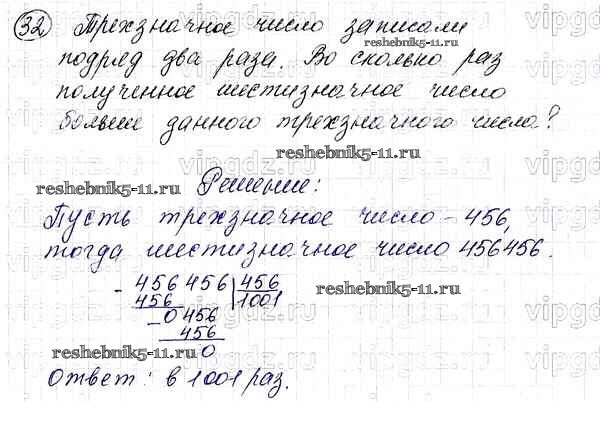 32 Трехзначное число записали
подряд два раза. Во сколько раз
reshebnik5-11.ru
полученное шестизначное число
больше данного трехзначного числа?
reshebnik5-11.ru
Решение:
reshebnik5-11.ru
Пусть трехзначное число - 456,
тогда шестизначное число 456456.
- 456 456 | 456
456 1001
reshebnik5-11.ru
- 0 456
456
reshebnik5-11.ru
0
Ответ: в 1001 раз.